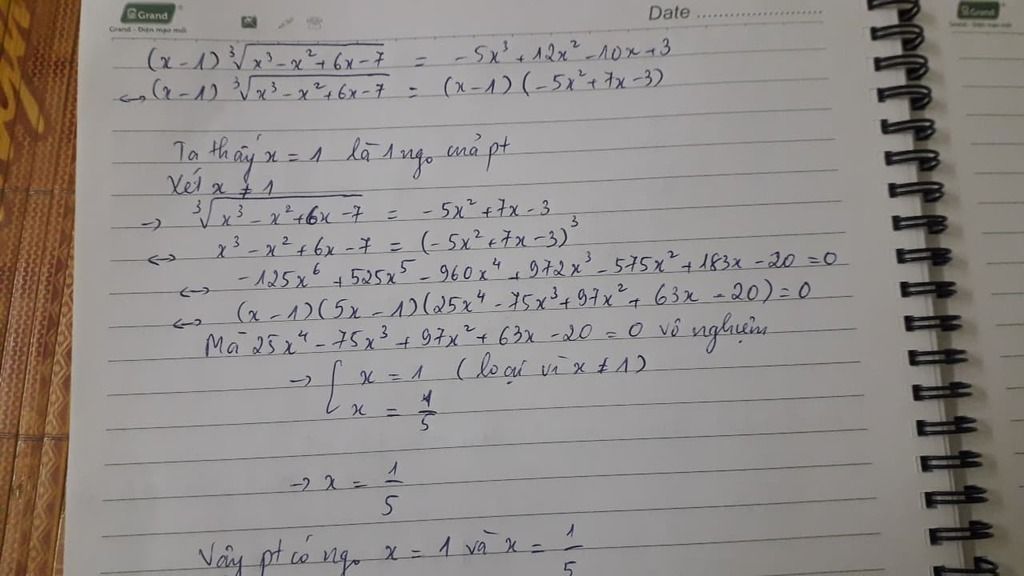 Grand
Grand - Diện mạo mới
Date
Grand
(x-1) ∛(x³-x²+6x-7) = -5x³+12x²-10x+3
↔ (x-1) ∛(x³-x²+6x-7) = (x-1)(-5x²+7x-3)
Ta thấy x = 1 là 1 ngo của pt
Xét x ≠ 1
→ ∛(x³-x²+6x-7) = -5x²+7x-3
↔ x³-x²+6x-7 = (-5x²+7x-3)³
↔ -125x⁶+525x⁵-960x⁴+972x³-575x²+183x-20=0
↔ (x-1)(5x-1)(25x⁴-75x³+97x²+63x-20)=0
Mà 25x⁴-75x³+97x²+63x-20=0 vô nghiệm
→ [ x = 1 (loại vì x ≠ 1)
x = 1/5
→ x = 1/5
Vậy pt có ngo x = 1 và x = 1/5